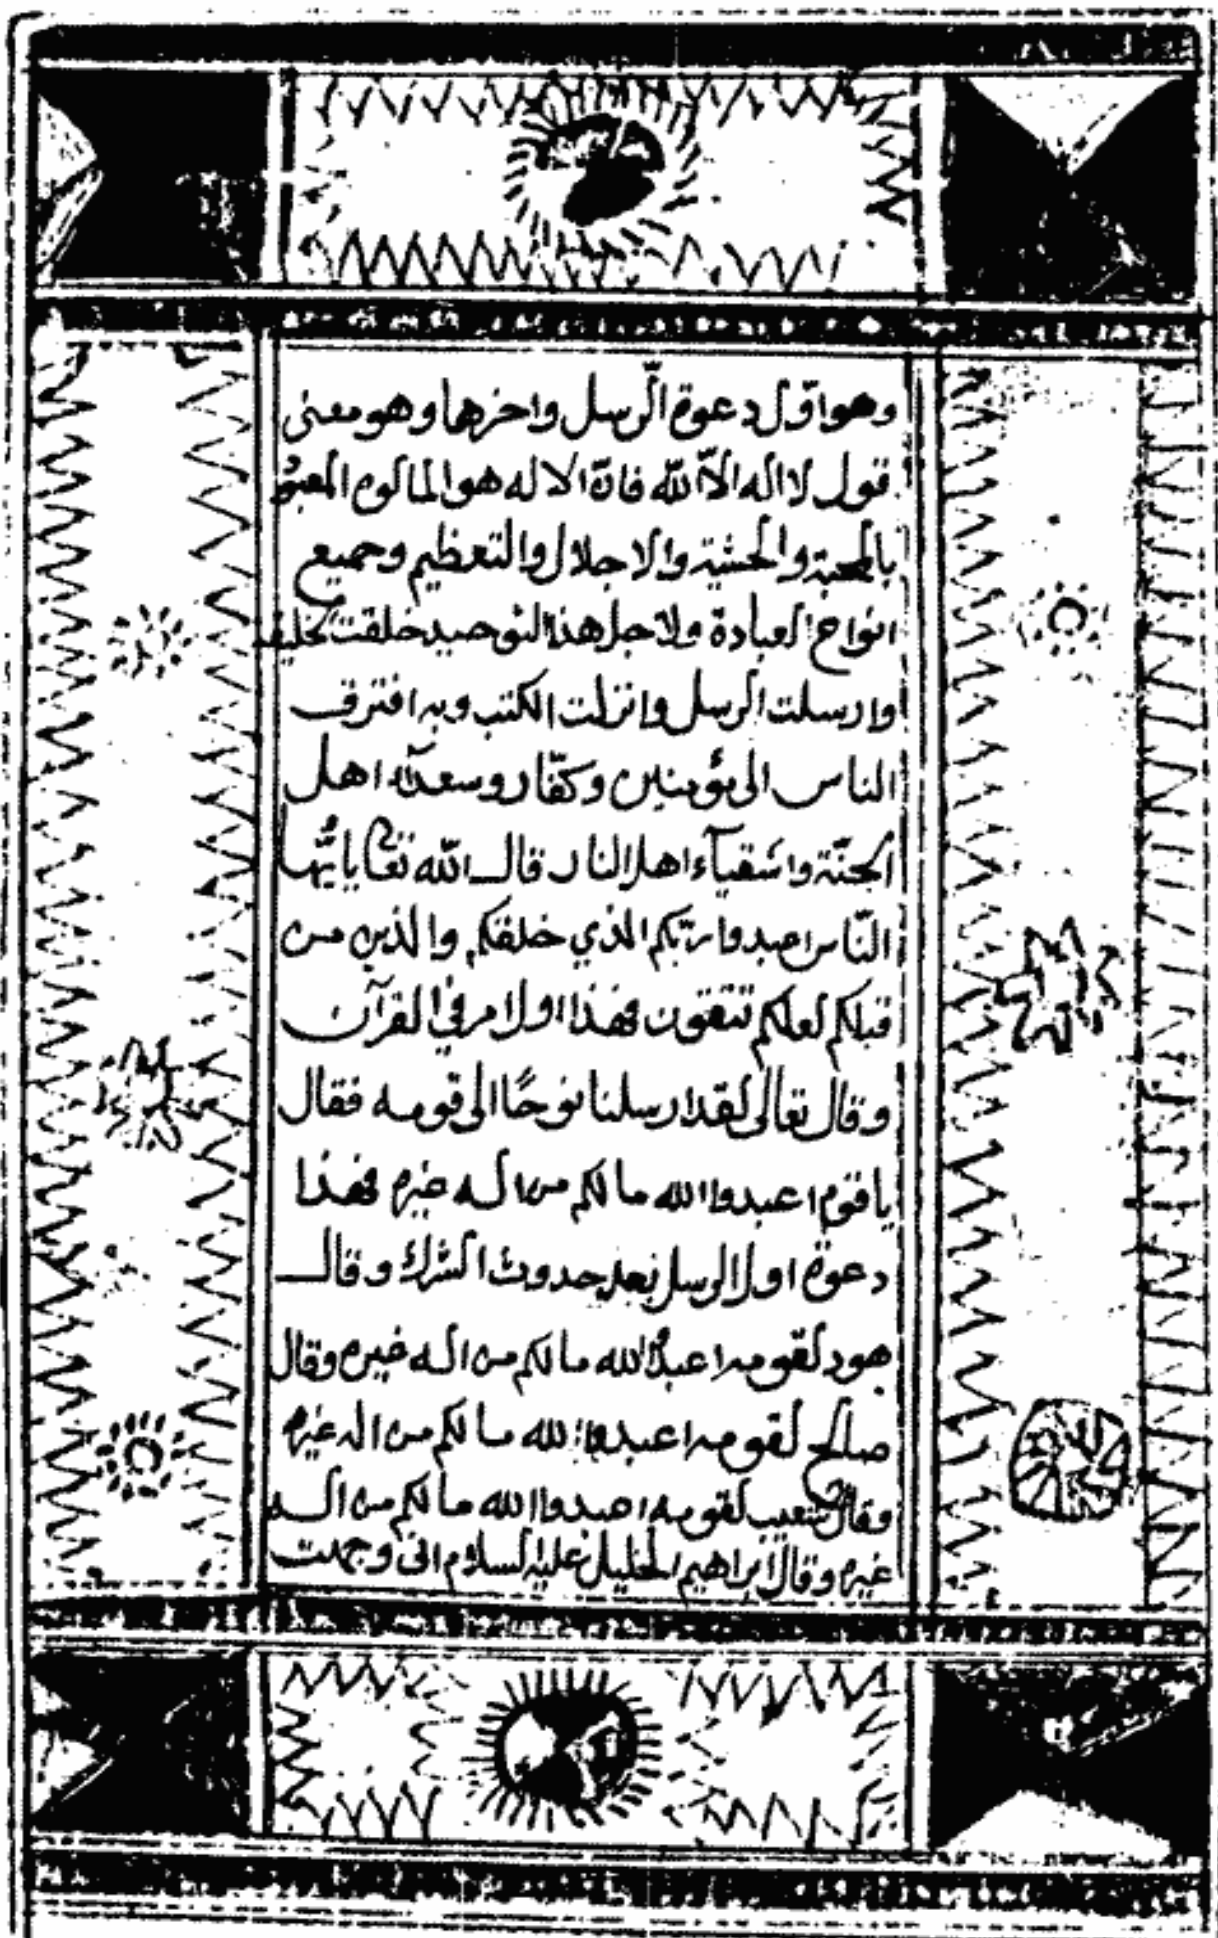 وهو اوّل دعوة الّرسل واخرها وهو معنى
قول لا اله الاّ الله فانّ الاله هو المالوه المعبود
بالمحبة والخشية والاجلال والتعظيم وجميع
انواع العبادة ولاجل هذا التوحيد خلقت الخليقة
وارسلت الرسل وانزلت الكتب وبه افترق
الناس الى مؤمنين وكفّار وسعدآء اهل
الجنّة واشقيآء اهل النار قال الله تعا يا ايّها
النّاس اعبدوا ربّكم الذي خلقكم والذين من
قبلكم لعلكم تتقون فهذا اول امر في القرآن
وقال تعالى لقد ارسلنا نوحًا الى قومه فقال
يا قوم اعبدوا الله ما لكم من اله غيره فهذا
دعوة اول الرسل بعد حدوث الشرك وقال
هود لقومه اعبدوا الله ما لكم من اله غيره وقال
صالح لقومه اعبدوا الله ما لكم من اله غيره
وقال شعيب لقومه اعبدوا الله ما لكم من اله
غيره وقال ابراهيم الخليل عليه السلام انى وجهت